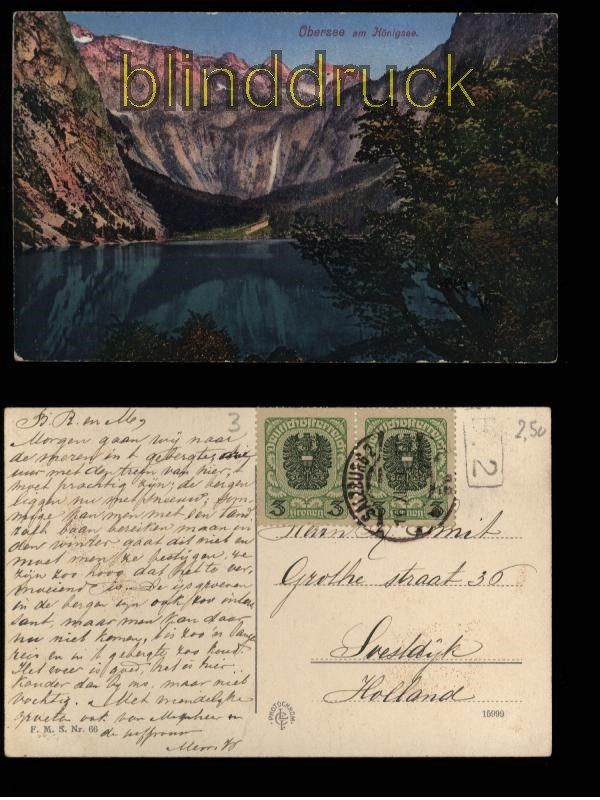 Obersee am Königsee.
blinddruck
B. R. en M.
Morgen gaan wij naar
de meren in 't gebergte, drie
uur met den trein van hier, 't
moet prachtig zijn; de bergen
liggen nu met sneeuw, som-
mige kan men met een tand
radbaan bereiken maar in
den winter gaat dit niet en
moet men ze bestijgen, ze
zijn zoo hoog dat het te ver-
moeiend is. De ijsgroeven
in de bergen zijn ook zoo interes
sant, maar men kan daar
nu niet komen, 't is zoo'n lange
reis en in 't gebergte zoo koud.
Het weer is goed, het is hier
kouder dan bij ons, maar niet
vochtig. Met vriendelijke
groeten ook van Mijnheer en
de juffrouw
F. M. S. Nr. 66
3
Deutschösterreich
3 Kronen 3
Deutschösterreich
Kronen
SALZBURG 2
2
2,50
Smit
Grothe straat 36
Soestdijk
Holland
PHOTOCHROM
15999